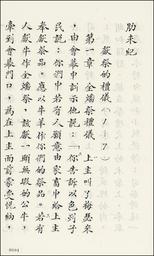 肋未紀
獻祭的禮儀(1-7)
第一章 全燔祭禮儀 上主叫了梅瑟來
,由會幕中訓示他說:「你告訴以色列子
民說:你們中若有人願意由家畜中給上主
奉獻祭品,應以牛羊作你們的祭品。若有
人獻牛作全燔祭,該獻一頭無瑕的公牛,
牽到會幕門口,為在上主面前蒙受悅納,